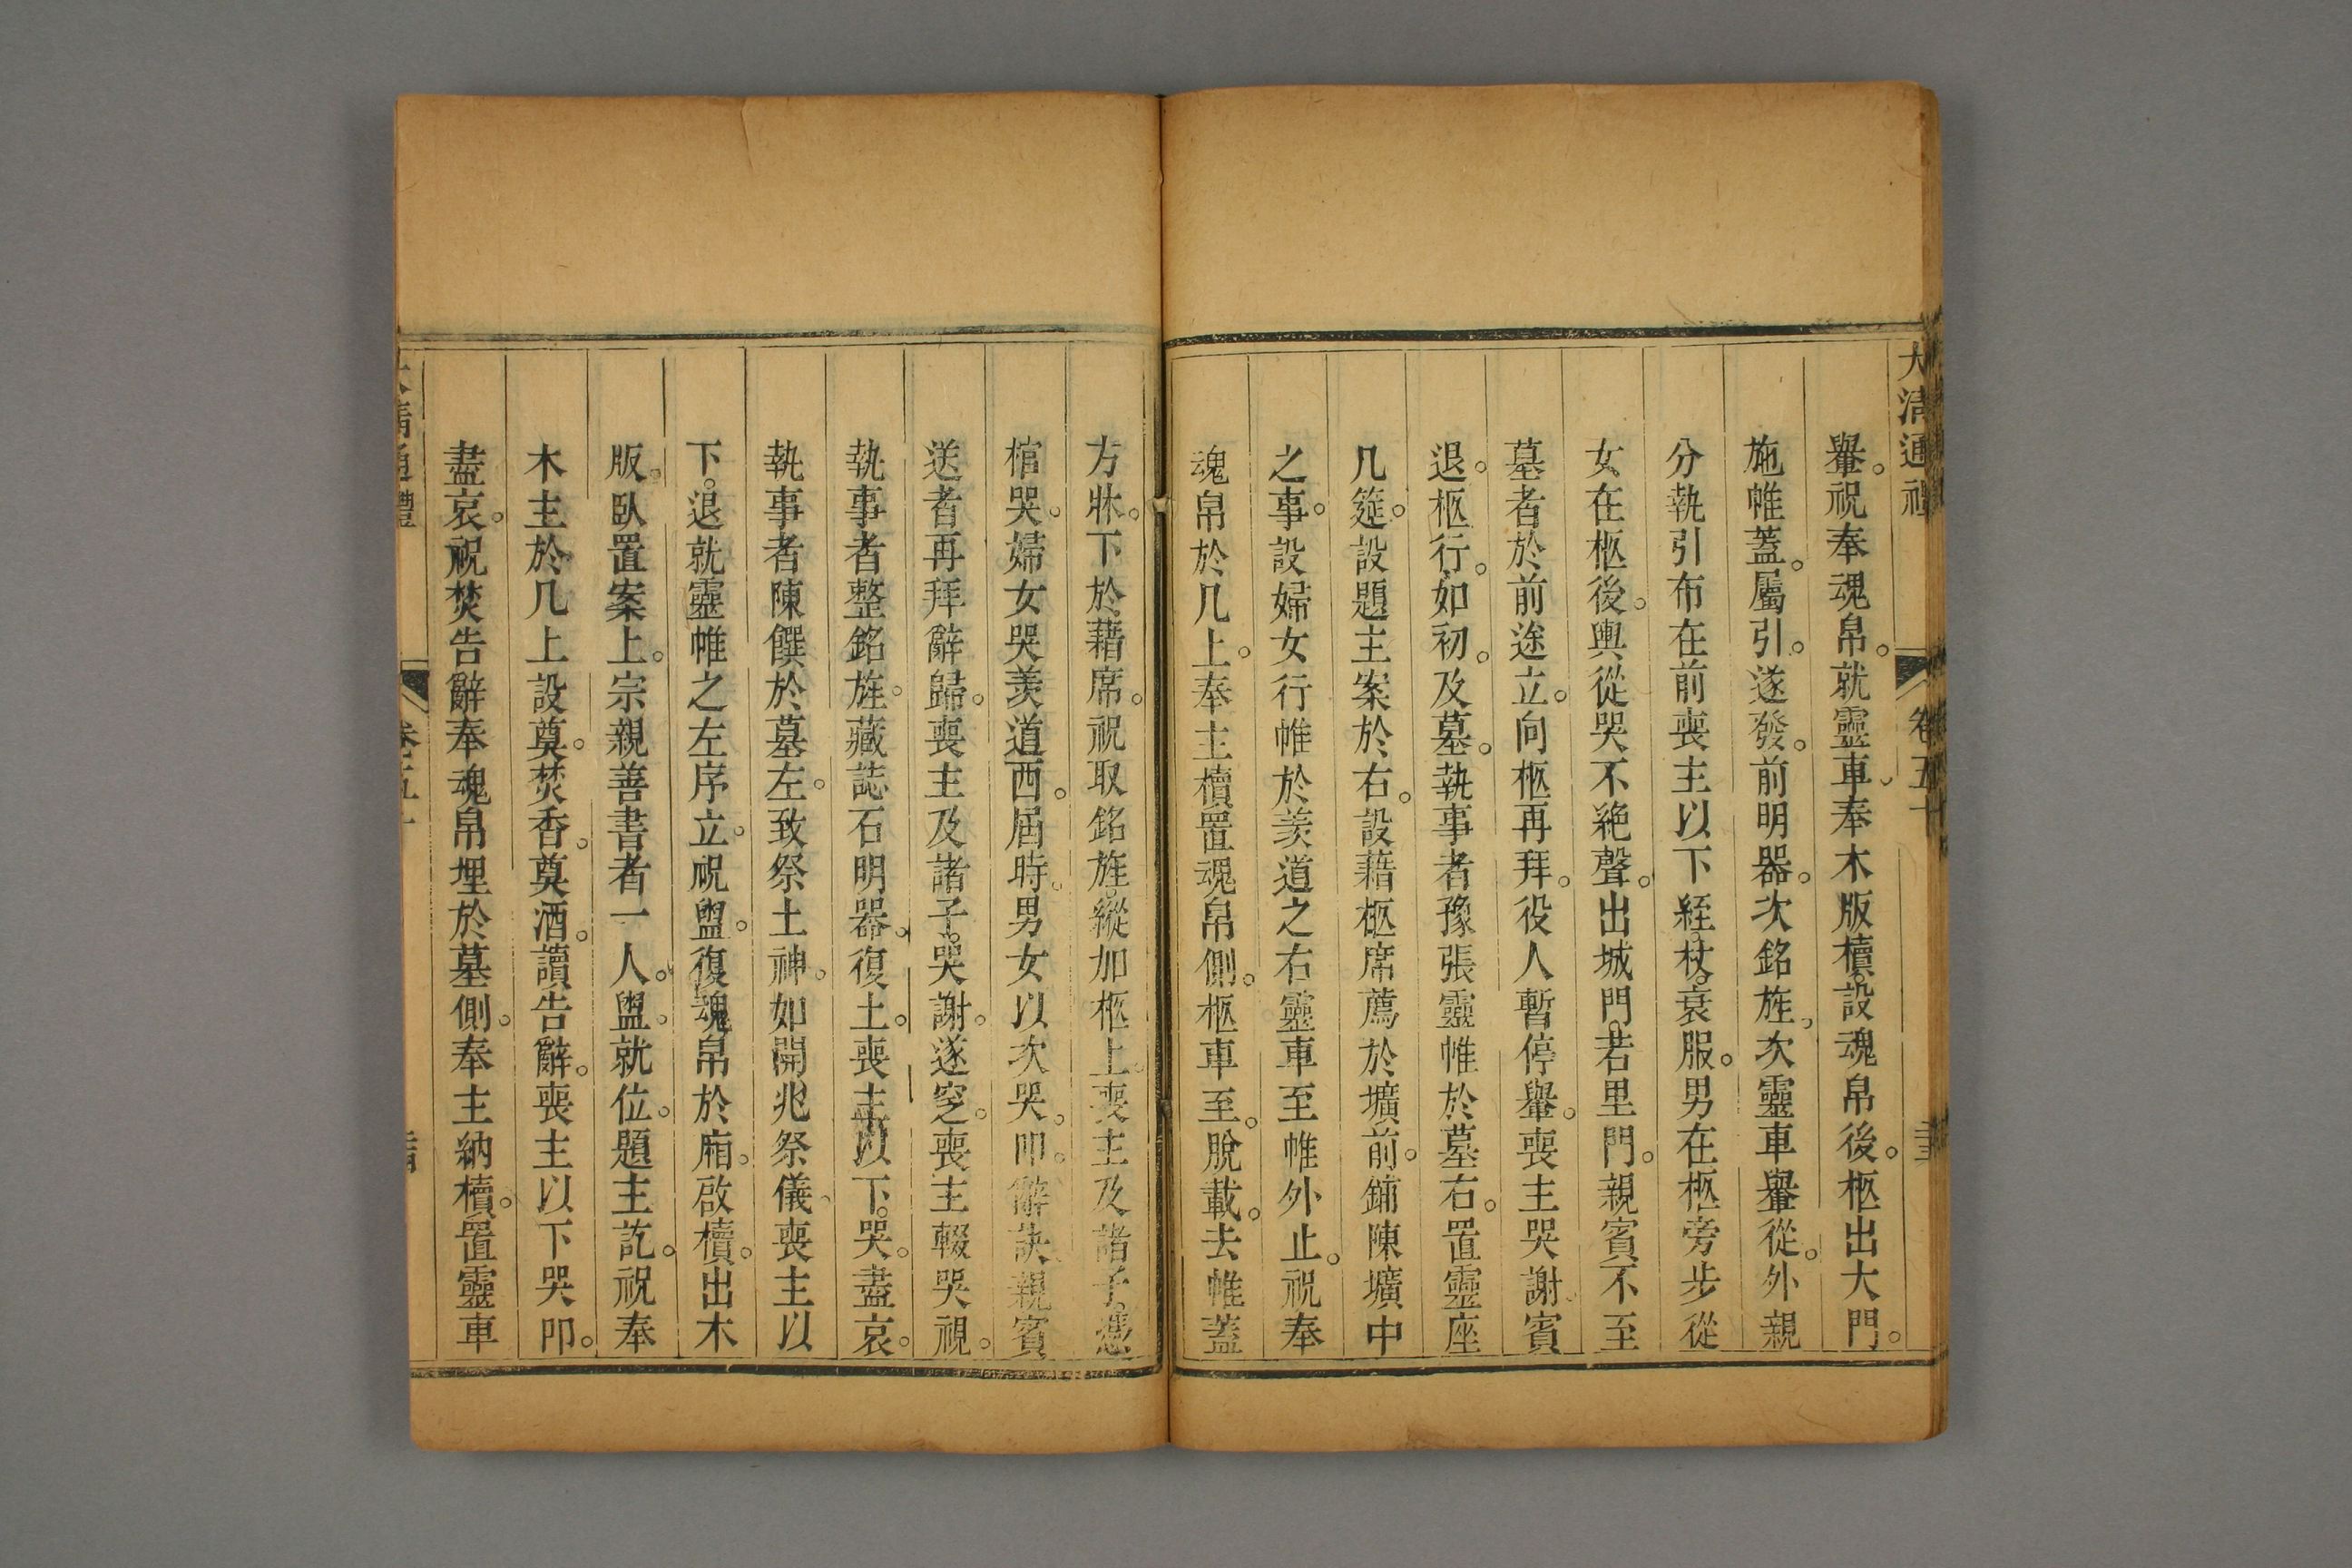 大清通禮 卷五十
轝。祝奉魂帛。就靈車。奉木版櫝。設魂帛後。柩出大門。
施帷蓋。屬引。遂發。前明器。次銘旌。次靈車。轝從。外親
分執引布在前。喪主以下絰。杖。衰服。男在柩旁步從
女在柩後。輿從。哭不絶聲。出城門。若里門。親賓不至
墓者於前途立。向柩再拜。役人暫停轝。喪主哭謝。賓
退。柩行。如初。及墓。執事者豫張靈帷於墓右。置靈座
几筵。設題主案於右。設藉柩席薦於壙前。鋪陳壙中
之事。設婦女行帷於羨道之右。靈車至帷外止。祝奉
魂帛於几上。奉主櫝置魂帛側。柩車至。脫載。去帷蓋
方牀。下於藉席。祝取銘旌。縱加柩上。喪主及諸子。憑
棺哭。婦女哭羨道西。屆時。男女以次哭。叩。辭訣。親賓
送者再拜辭歸。喪主及諸子。哭謝。遂窆。喪主輟哭視。
執事者整銘旌。藏誌石明器。復土。喪主以下。哭。盡哀。
執事者陳饌於墓左。致祭土神。如開兆祭儀。喪主以
下。退就靈帷之左序立。祝盥。復魂帛於廂。啟櫝。出木
版。臥置案上。宗親善書者一人。盥。就位。題主訖。祝奉
木主於几上設奠。焚香。奠酒。讀告辭。喪主以下哭叩。
盡哀。祝焚告辭奉魂帛埋於墓側。奉主納櫝。置靈車
大清通禮 卷五十